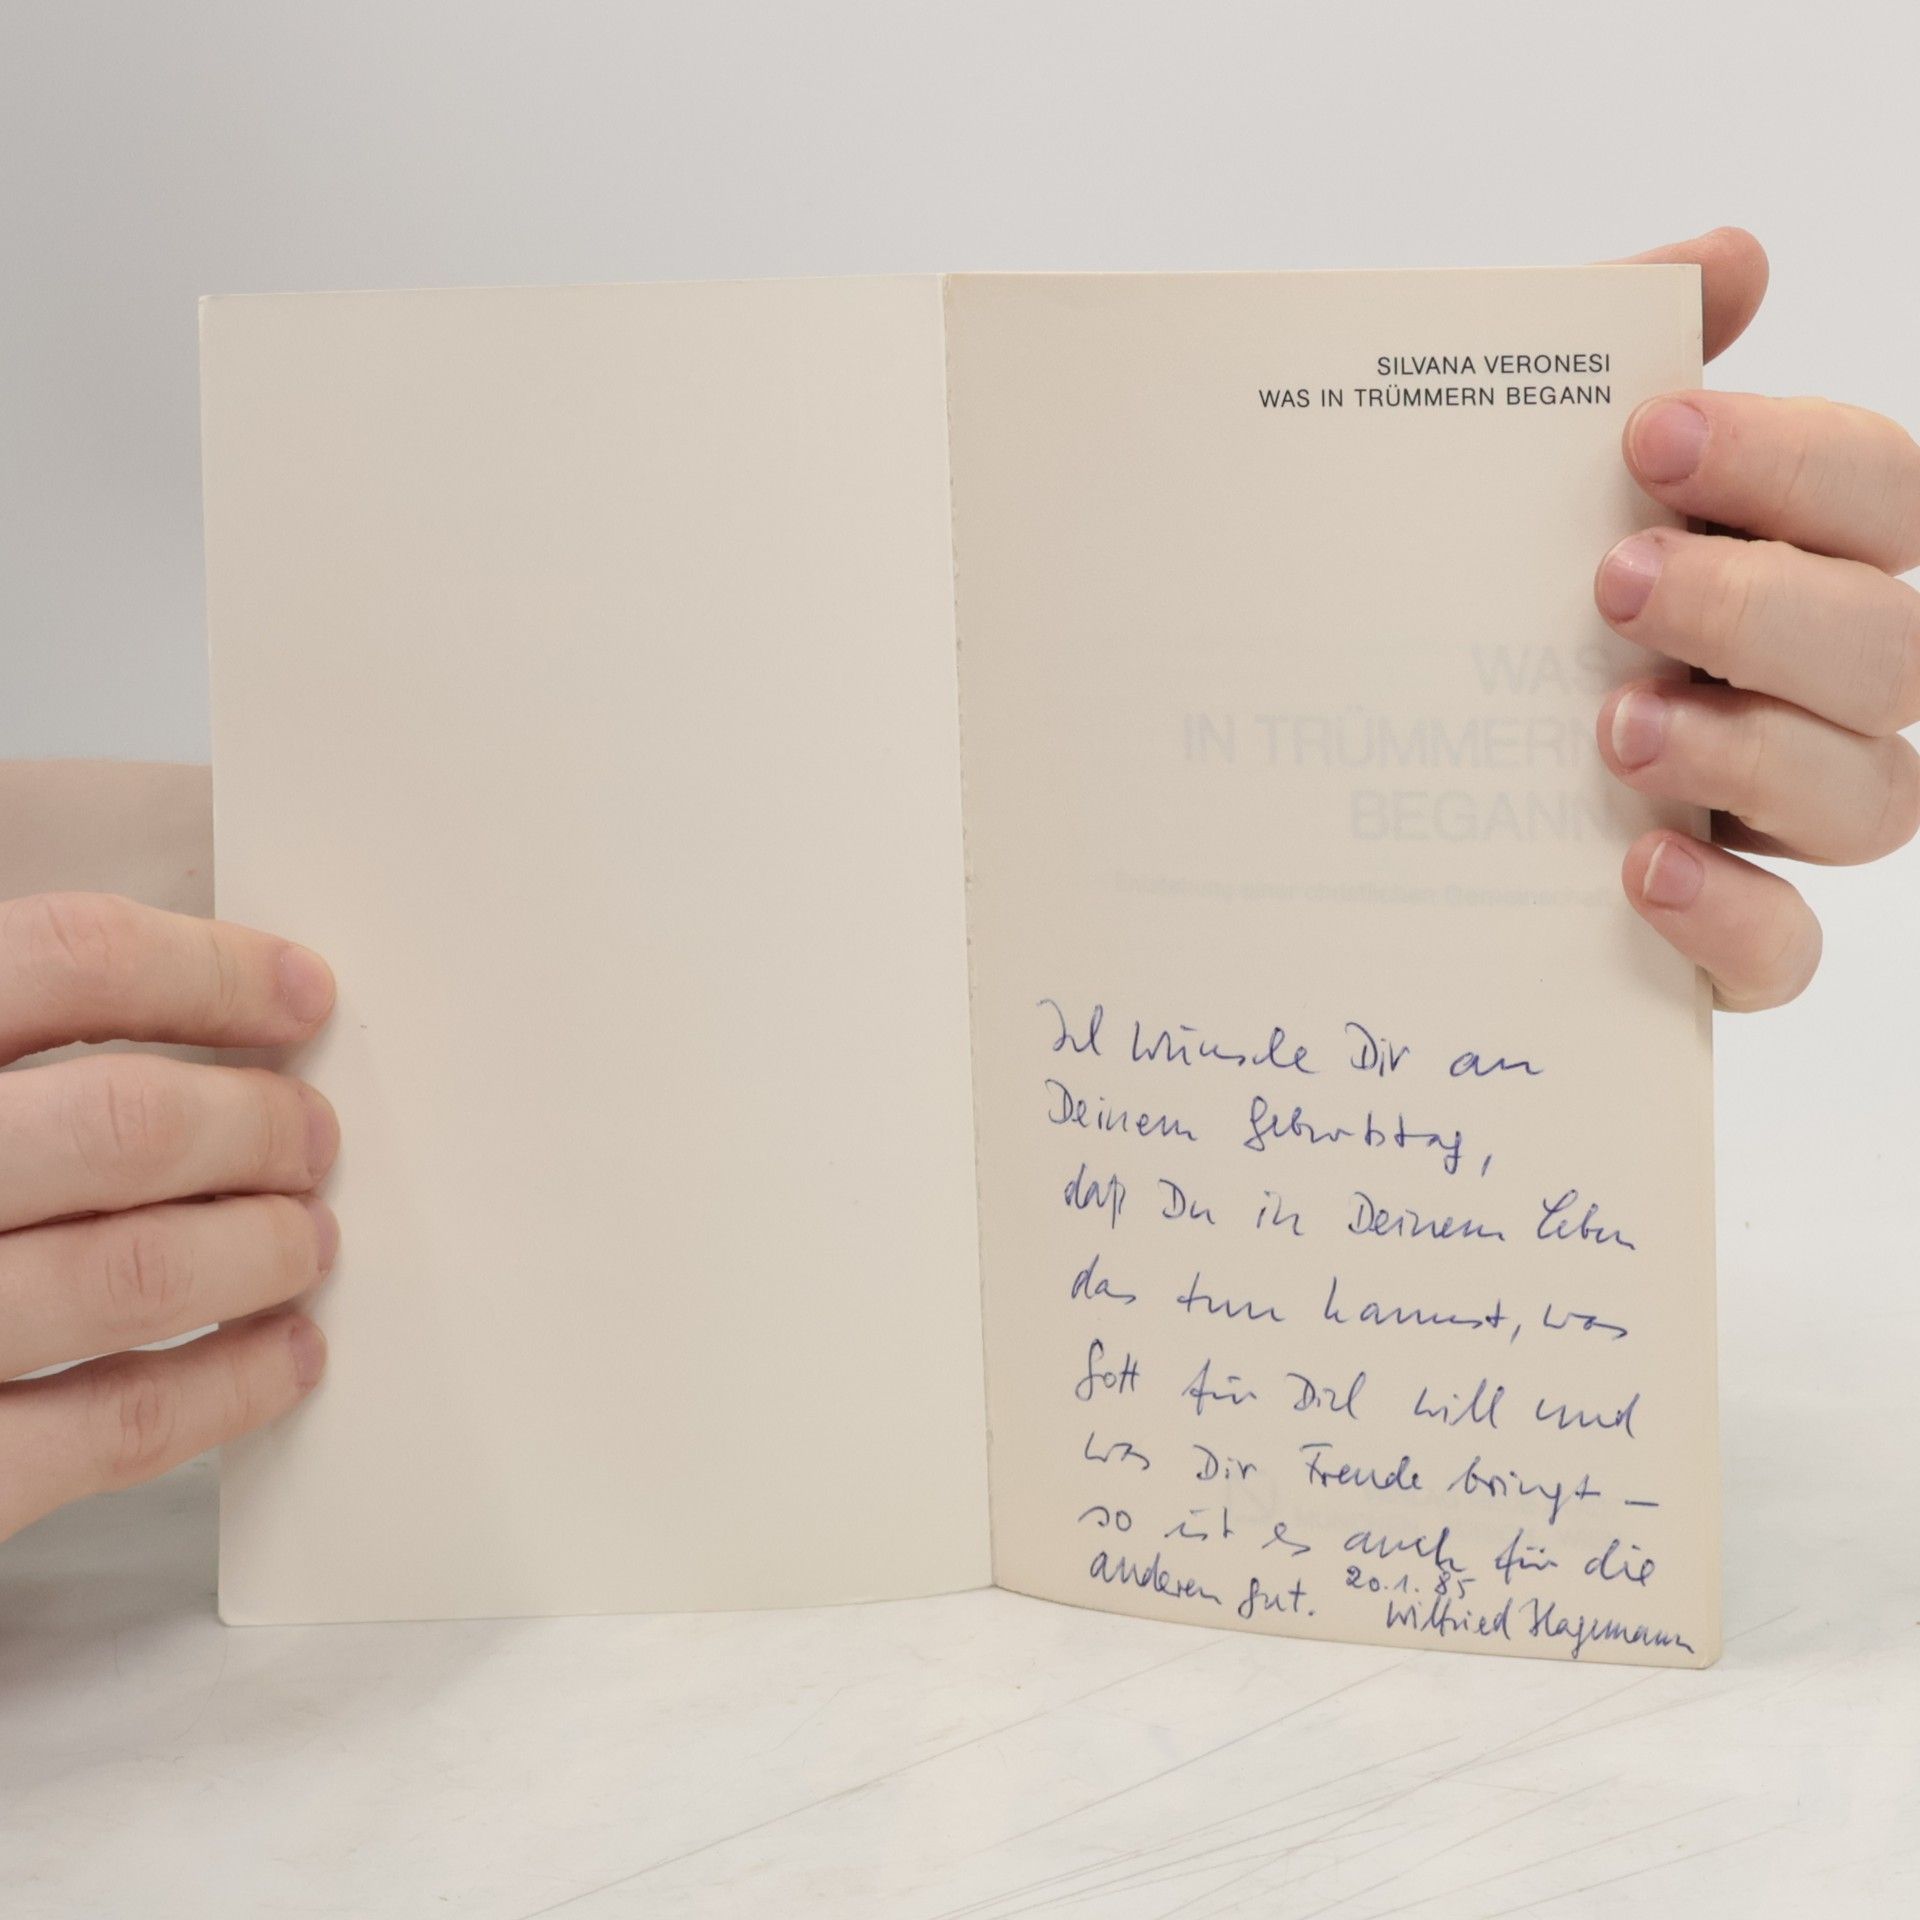 SILVANA VERONESI
WAS IN TRÜMMERN BEGANN
WAS
IN TRÜMMERN
BEGANN
Entstehung einer christlichen Gemeinschaft
Ich wünsche Dir an
Deinem Geburtstag,
daß Du in Deinem Leben
das tun kannst, was
Gott für Dich will und
was Dir Freude bringt –
so ist es auch für die
anderen gut. 20.1.85
Wilfried Hagemann